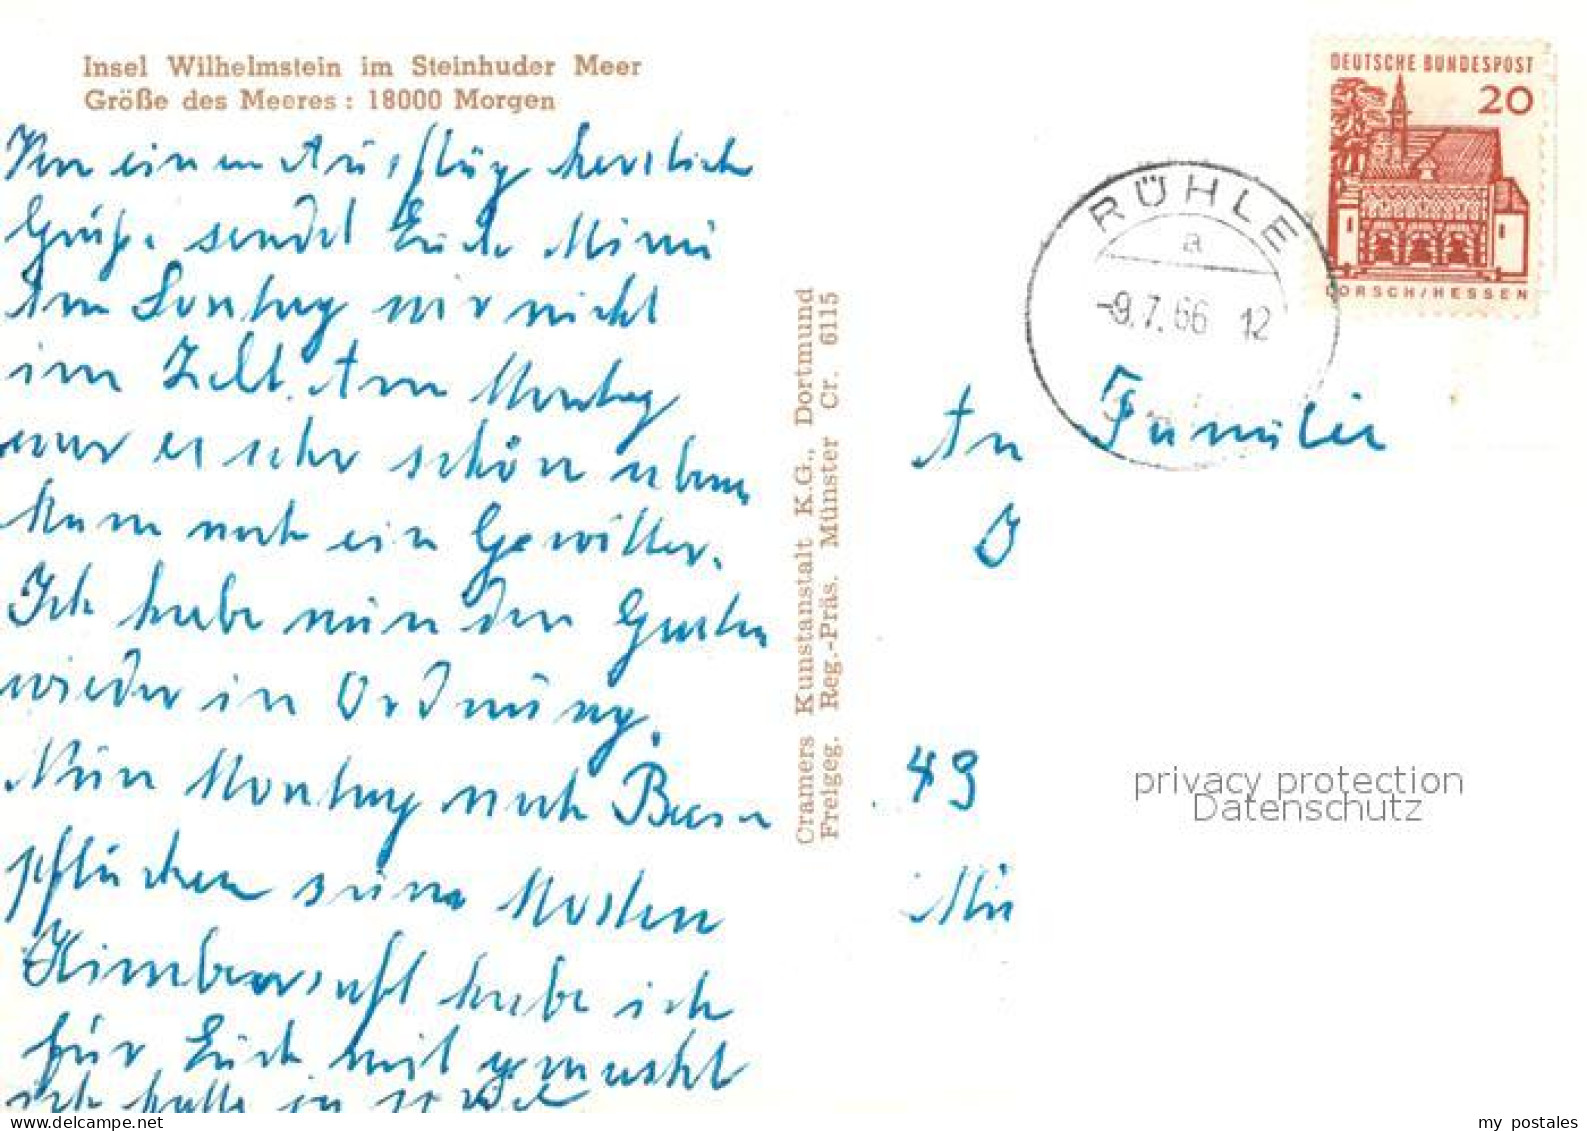 Insel Wilhelmstein im Steinhuder Meer
Größe des Meeres: 18000 Morgen
Von einem Ausflug herzliche
Grüße sendet Euch Mimi
Am Sonntag wir nicht
im Zelt. Am Montag
war es sehr schön abens
kam noch ein Gewitter.
Ich habe nun den Garten
wieder in Ordnung.
Nun Montag noch Beeren
pflücken zum Mosten
Himbeersaft habe ich
für Euch mit gemacht
ich hatte ja so viel
Cramers Kunstanstalt K.G., Dortmund
Freigeg. Reg.-Präs. Münster Cr. 6115
DEUTSCHE BUNDESPOST
20
LORSCH/HESSEN
RÜHLE
a
-9.7.66 12
An Familie
J
49
Mü
privacy protection
Datenschutz
my postales